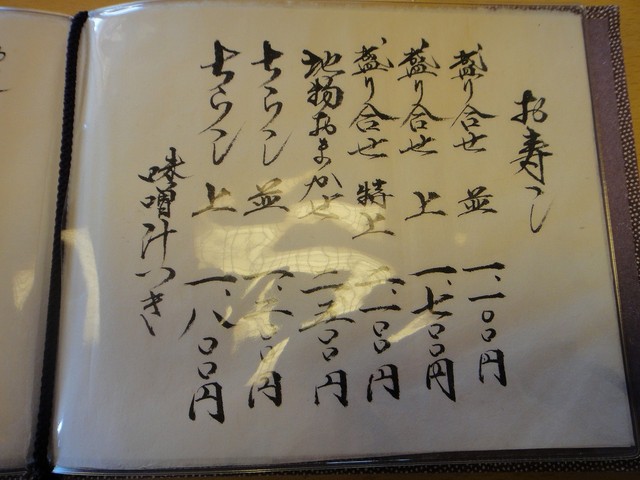 お寿し
盛り合せ 並 一、一〇〇円
盛り合せ 上 一、七〇〇円
盛り合せ 特上 二、一〇〇円
地物おまかせ 二、五〇〇円
ちらし 並 一、三〇〇円
ちらし 上 一、八〇〇円
味噌汁つき